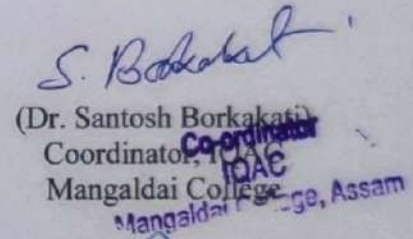 S. Borkakati
(Dr. Santosh Borkakati)
Coordinator, IQAC
Mangaldai College
Co-ordinator
IQAC
Mangaldai College, Assam